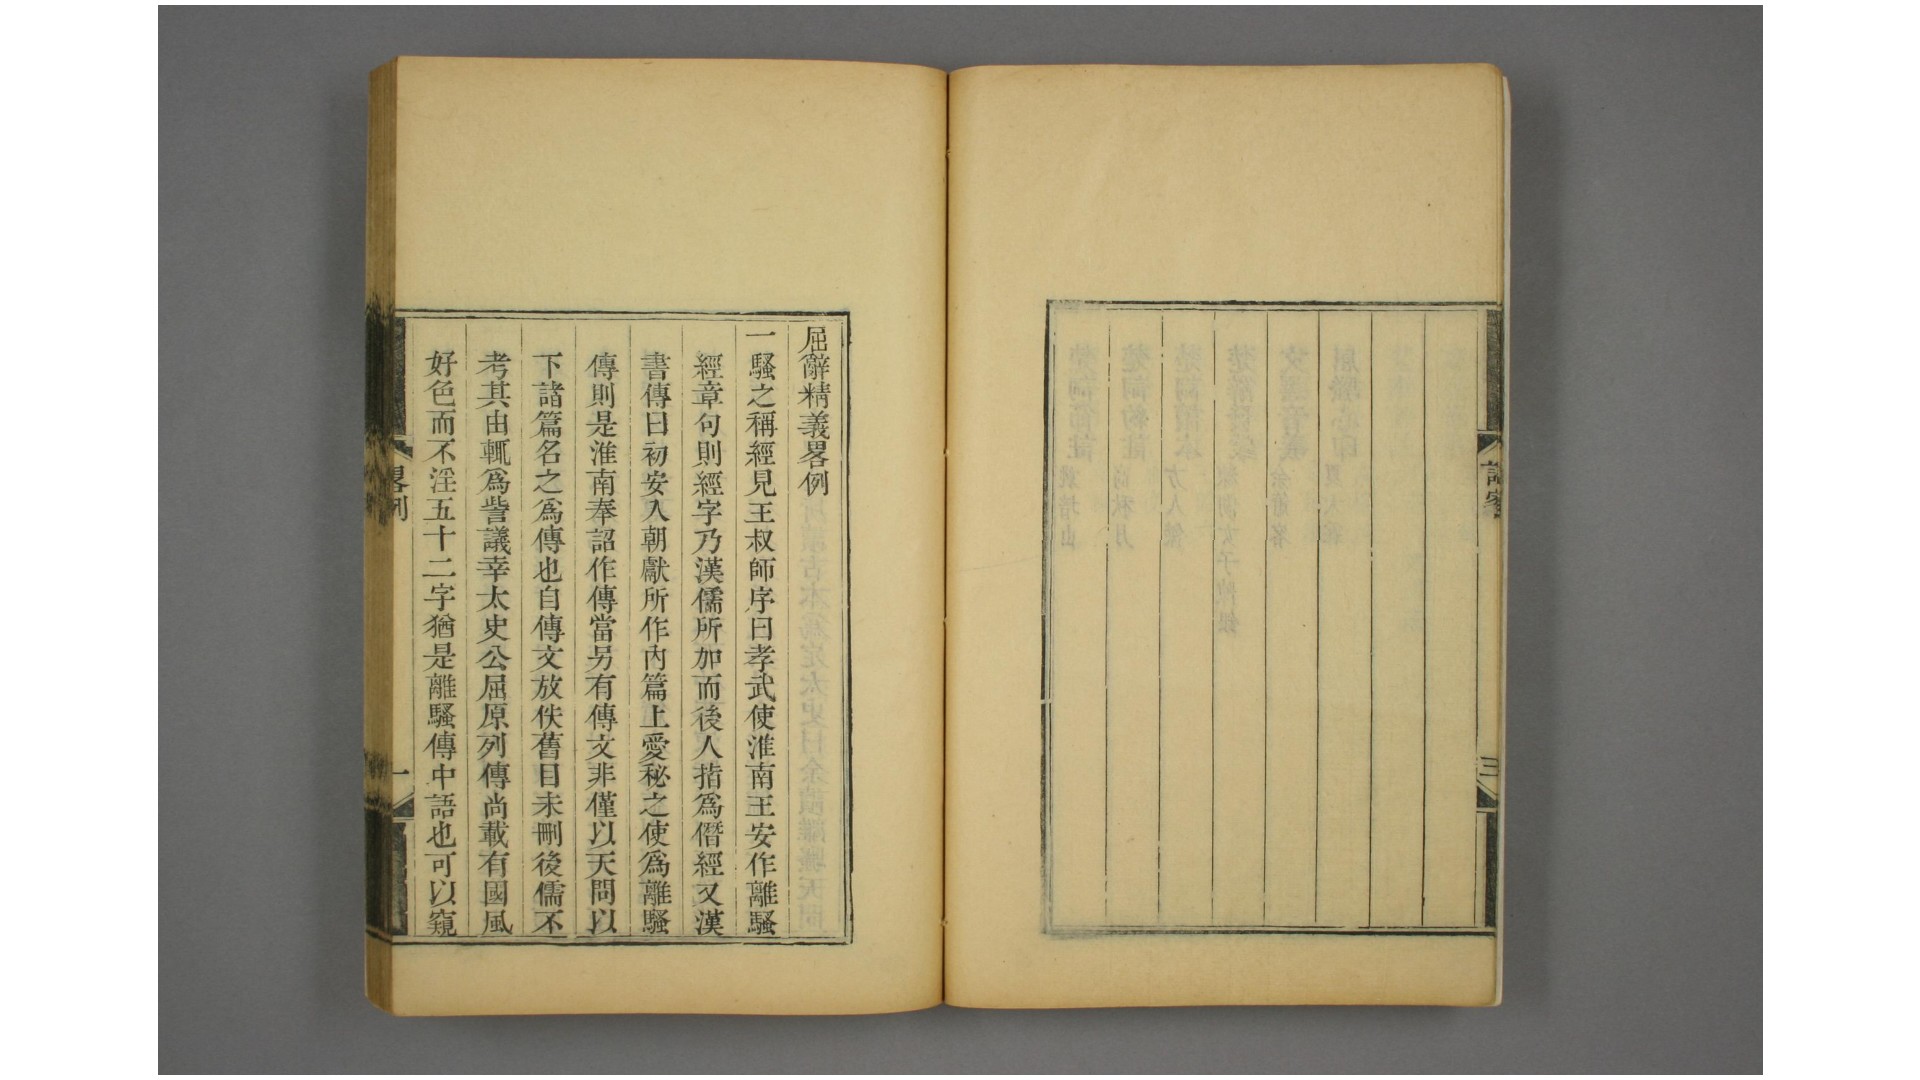 諸家
三
屈辭精義畧例
一騷之稱經見王叔師序曰孝武使淮南王安作離騷
經章句則經字乃漢儒所加而後人指為僭經又漢
書傳曰初安入朝獻所作內篇上愛秘之使為離騷
傳則是淮南奉詔作傳當另有傳文非僅以天問以
下諸篇名之為傳也自傳文放佚舊目未刪後儒不
考其由輒為訾議幸太史公屈原列傳尚載有國風
好色而不淫五十二字猶是離騷傳中語也可以窺
畧例
一